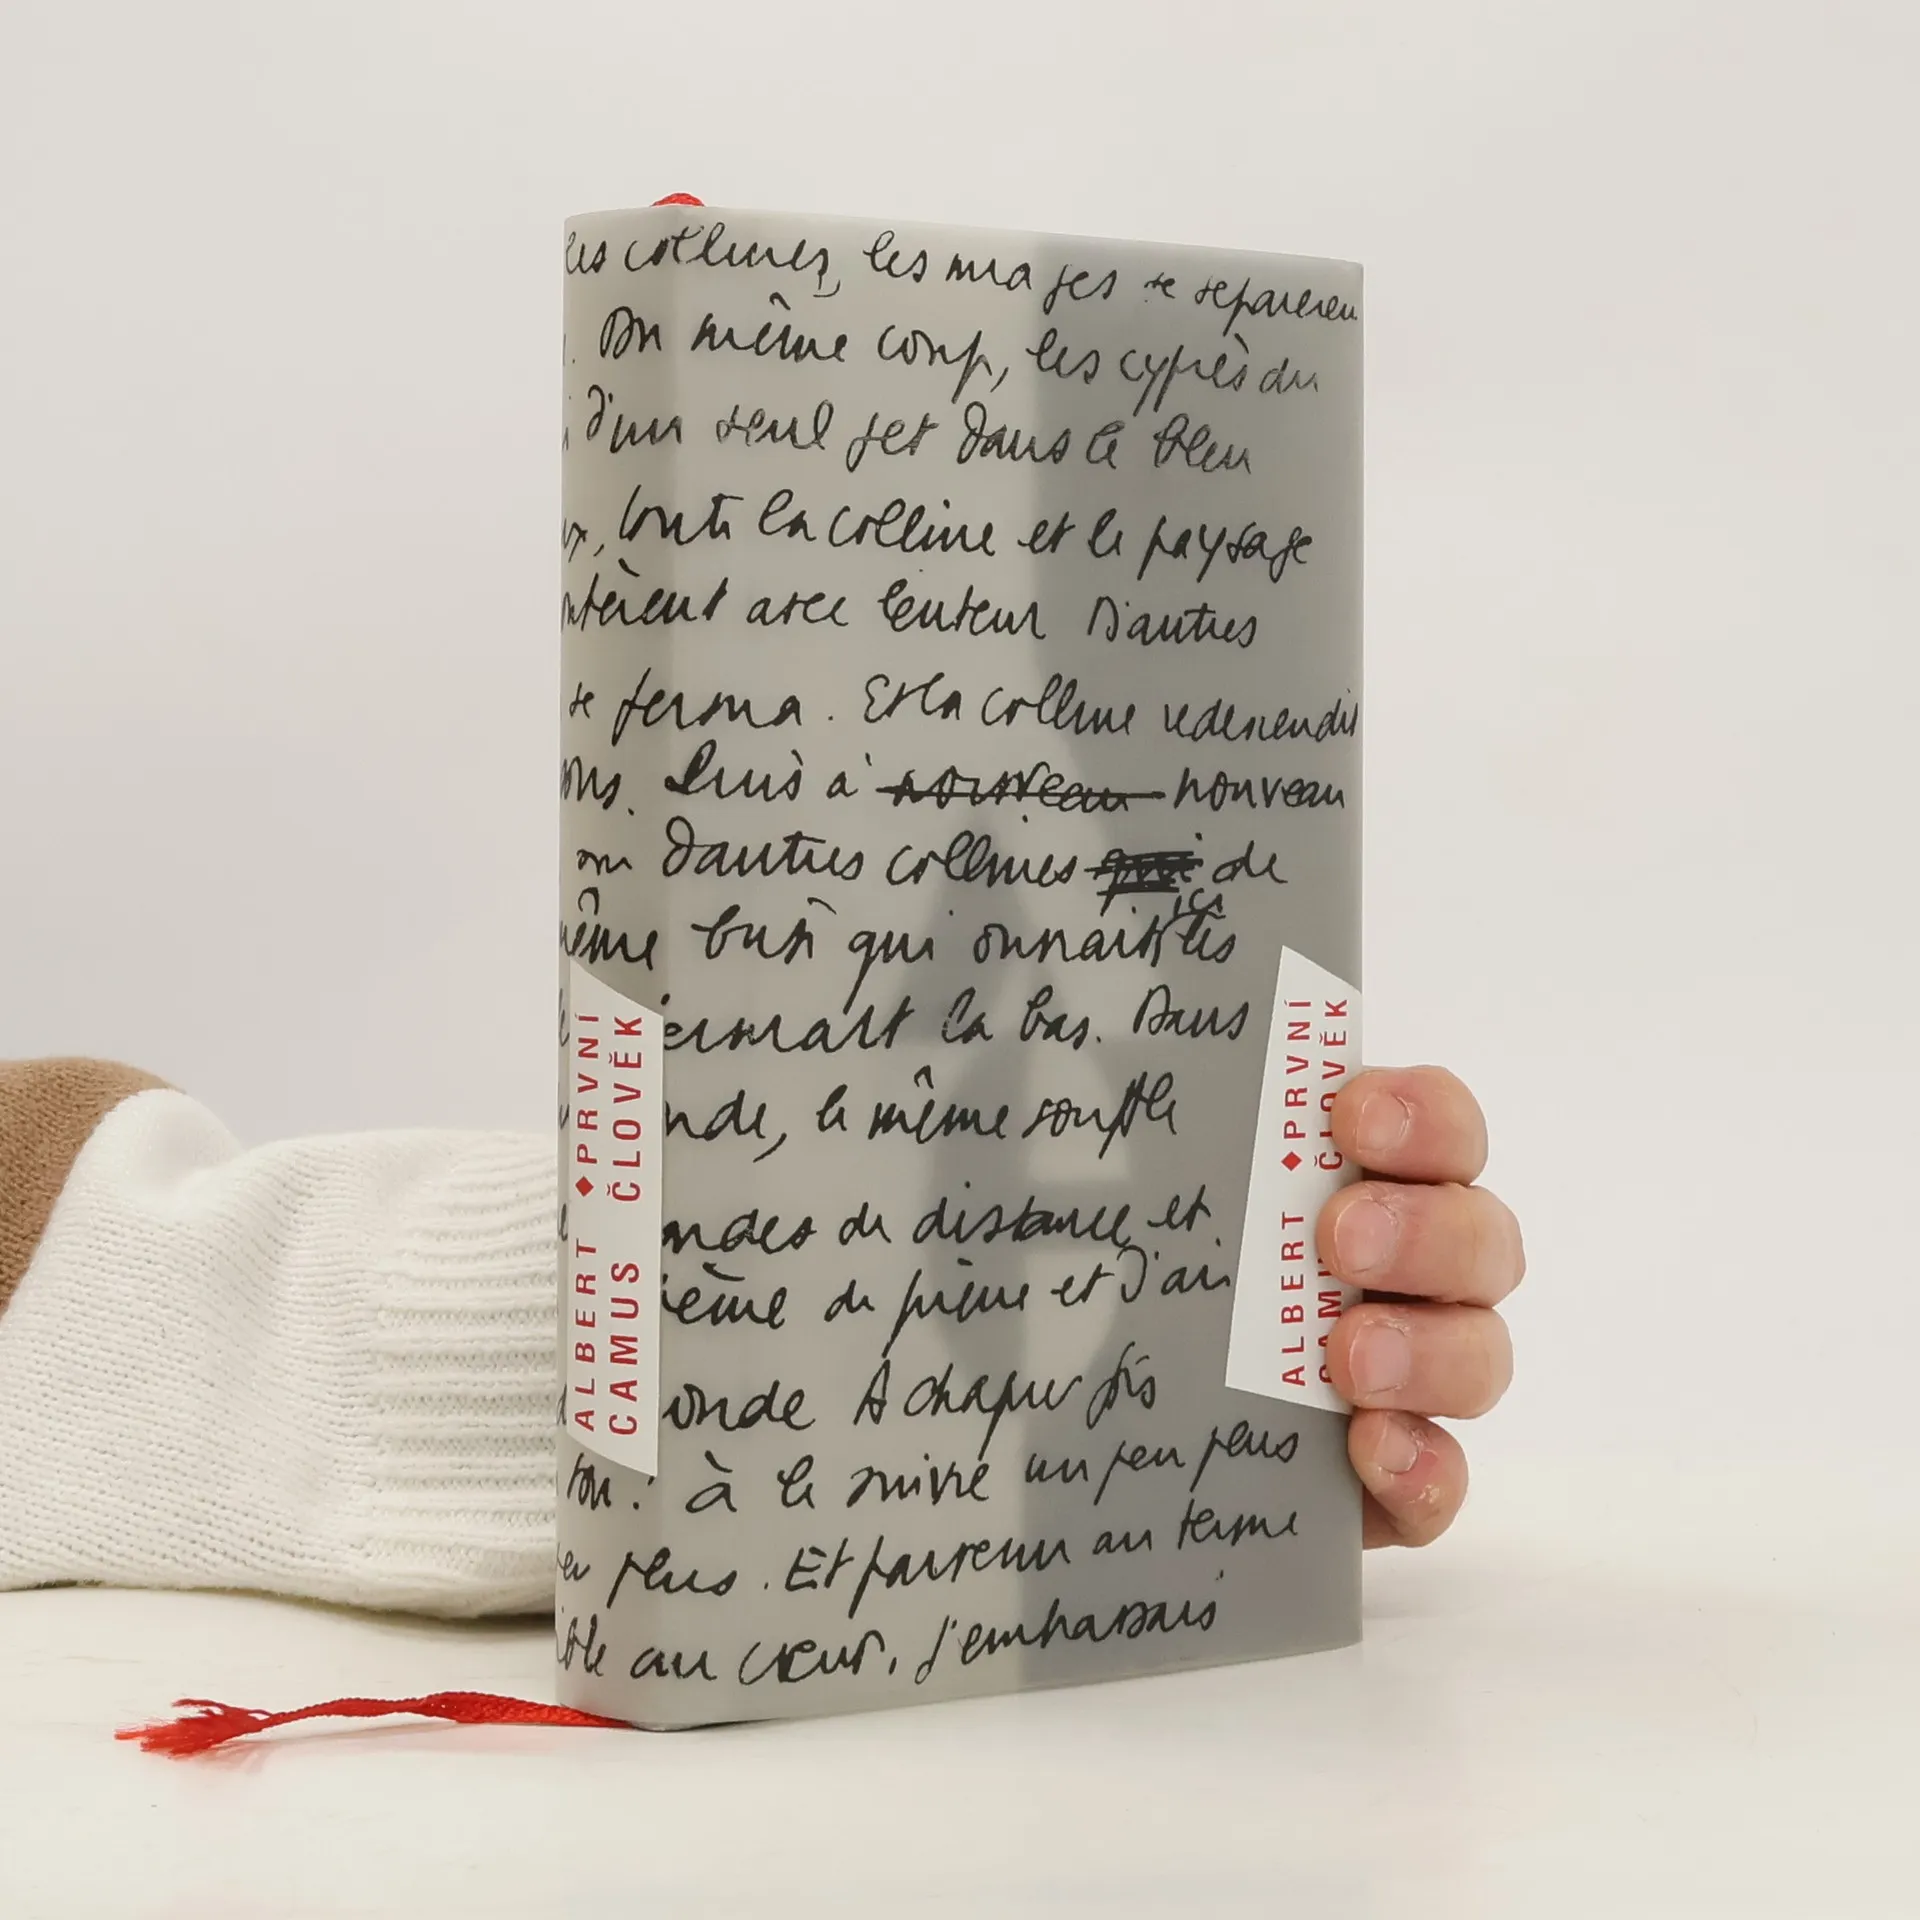 les collines, les nuages se séparèren
. Du même coup, les cyprès du
d'un seul jet dans le bleu
x, toute la colline et le paysage
avec lenteur D'autres
se ferma. Et la colline redescendit
Puis à nouveau nouveau
ou d'autres collines qui de
même qui ici les
là bas. Dans
nde, le même souffle
ondes de distance et
de pierre et j'ai
onde A chaque fois
: à le suivre un peu plus
plus. Et parvenu au terme
au cœur, j'embrassais
ALBERT ◆ PRVNÍ
CAMUS ČLOVĚK
ALBERT ◆ PRVNÍ
CAMU ČLOVĚK